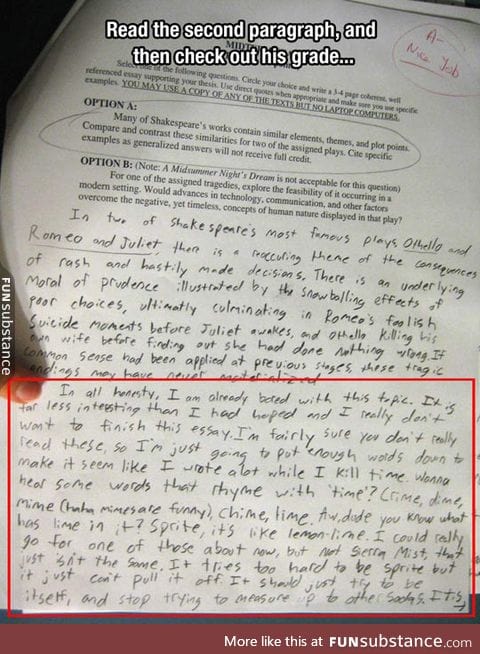 Read the second paragraph, and
then check out his grade...
A-
Nice Job
Select one of the following questions. Circle your choice and write a 3-4 page coherent, well
referenced essay supporting your thesis. Use direct quotes when appropriate and make sure you use specific
examples. YOU MAY USE A COPY OF ANY OF THE TEXTS BUT NO LAPTOP COMPUTERS.
OPTION A:
Many of Shakespeare's works contain similar elements, themes, and plot points.
Compare and contrast these similarities for two of the assigned plays. Cite specific
examples as generalized answers will not receive full credit.
OPTION B: (Note: A Midsummer Night's Dream is not acceptable for this question)
For one of the assigned tragedies, explore the feasibility of it occurring in a
modern setting. Would advances in technology, communication, and other factors
overcome the negative, yet timeless, concepts of human nature displayed in that play?
In two of Shakespeare's most famous plays, Othello and
Romeo and Juliet, there is a reoccuring theme of the consequences
of rash and hastily made decisions. There is an underlying
moral of prudence illustrated by the snowballing effects of
poor choices, ultimatly culminating in Romeo's foolish
suicide moments before Juliet awakes, and Othello killing his
own wife before finding out she had done nothing wrong. If
common sense had been applied at previous stages, these tragic
endings may have never materialized
In all honesty, I am already bored with this topic. It is
far less interesting than I had hoped and I really don't
want to finish this essay. I'm fairly sure you don't really
read these, so I'm just going to put enough words down to
make it seem like I wrote alot while I kill time. Wanna
hear some words that rhyme with 'time'? Crime, dime,
mime (haha mimes are funny), chime, lime. Aw, dude you know what
has lime in it? Sprite, it's like lemon-lime. I could really
go for one of those about now, but not Sierra Mist, that
just isn't the same. It tries too hard to be sprite but
it just can't pull it off. It should just try to be
itself, and stop trying to measure up to other sodas. It is
FUNsubstance
More like this at FUNsubstance.com